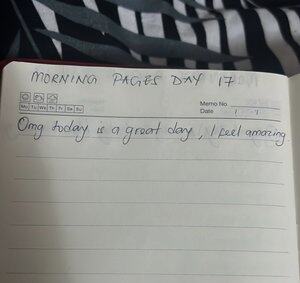 MORNING PAGES DAY 17
Memo No.
Mo Tu We Th Fr Sa Su
Date / /
Omg today is a great day, I feel amazing.